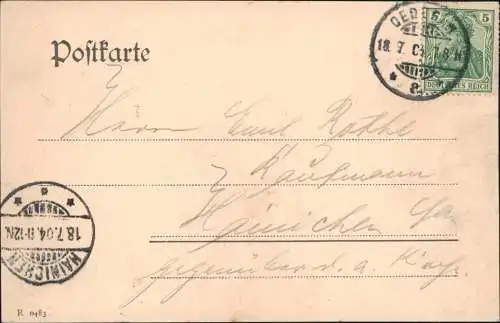 Postkarte
OEDERAN
18. 7. 04. 7-8 N.
5 5
DEUTSCHES REICH
Herrn Emil Rothe
Kaufmann
Hainichen Sa.
gegenüber d. a.
HAINICHEN
18.7.04.11-12N.
R 0483